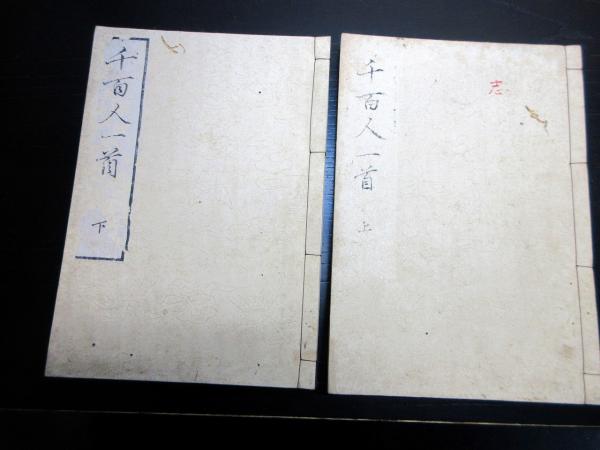 千百人一首
上
志
千百人一首
下